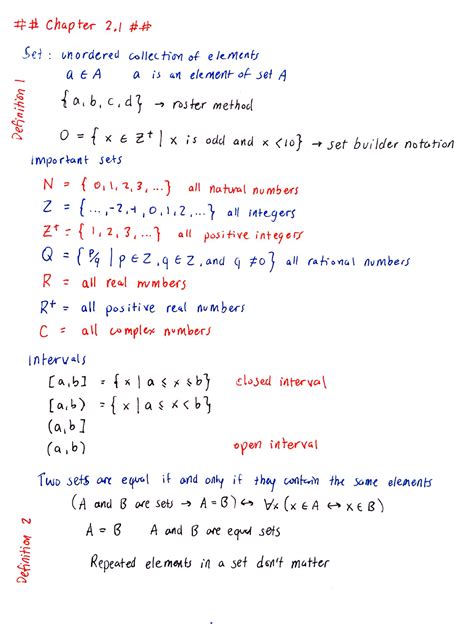 ## Chapter 2.1 ##
Set : unordered collection of elements
a ∈ A a is an element of set A
Definition 1
{a, b, c, d} → roster method
O = { x ∈ Z⁺ | x is odd and x < 10} → set builder notation
important sets
N = { 0, 1, 2, 3, ...} all natural numbers
Z = { ..., -2, -1, 0, 1, 2, ...} all integers
Z⁺ = { 1, 2, 3, ...} all positive integers
Q = { p/q | p ∈ Z, q ∈ Z, and q ≠ 0} all rational numbers
R = all real numbers
R⁺ = all positive real numbers
C = all complex numbers
Intervals
[a, b] = { x | a ≤ x ≤ b} closed interval
[a, b) = { x | a ≤ x < b}
(a, b]
(a, b) open interval
Two sets are equal if and only if they contain the same elements
(A and B are sets → A = B) ↔ ∀x (x ∈ A ↔ x ∈ B)
Definition 2
A = B A and B are equal sets
Repeated elements in a set don't matter